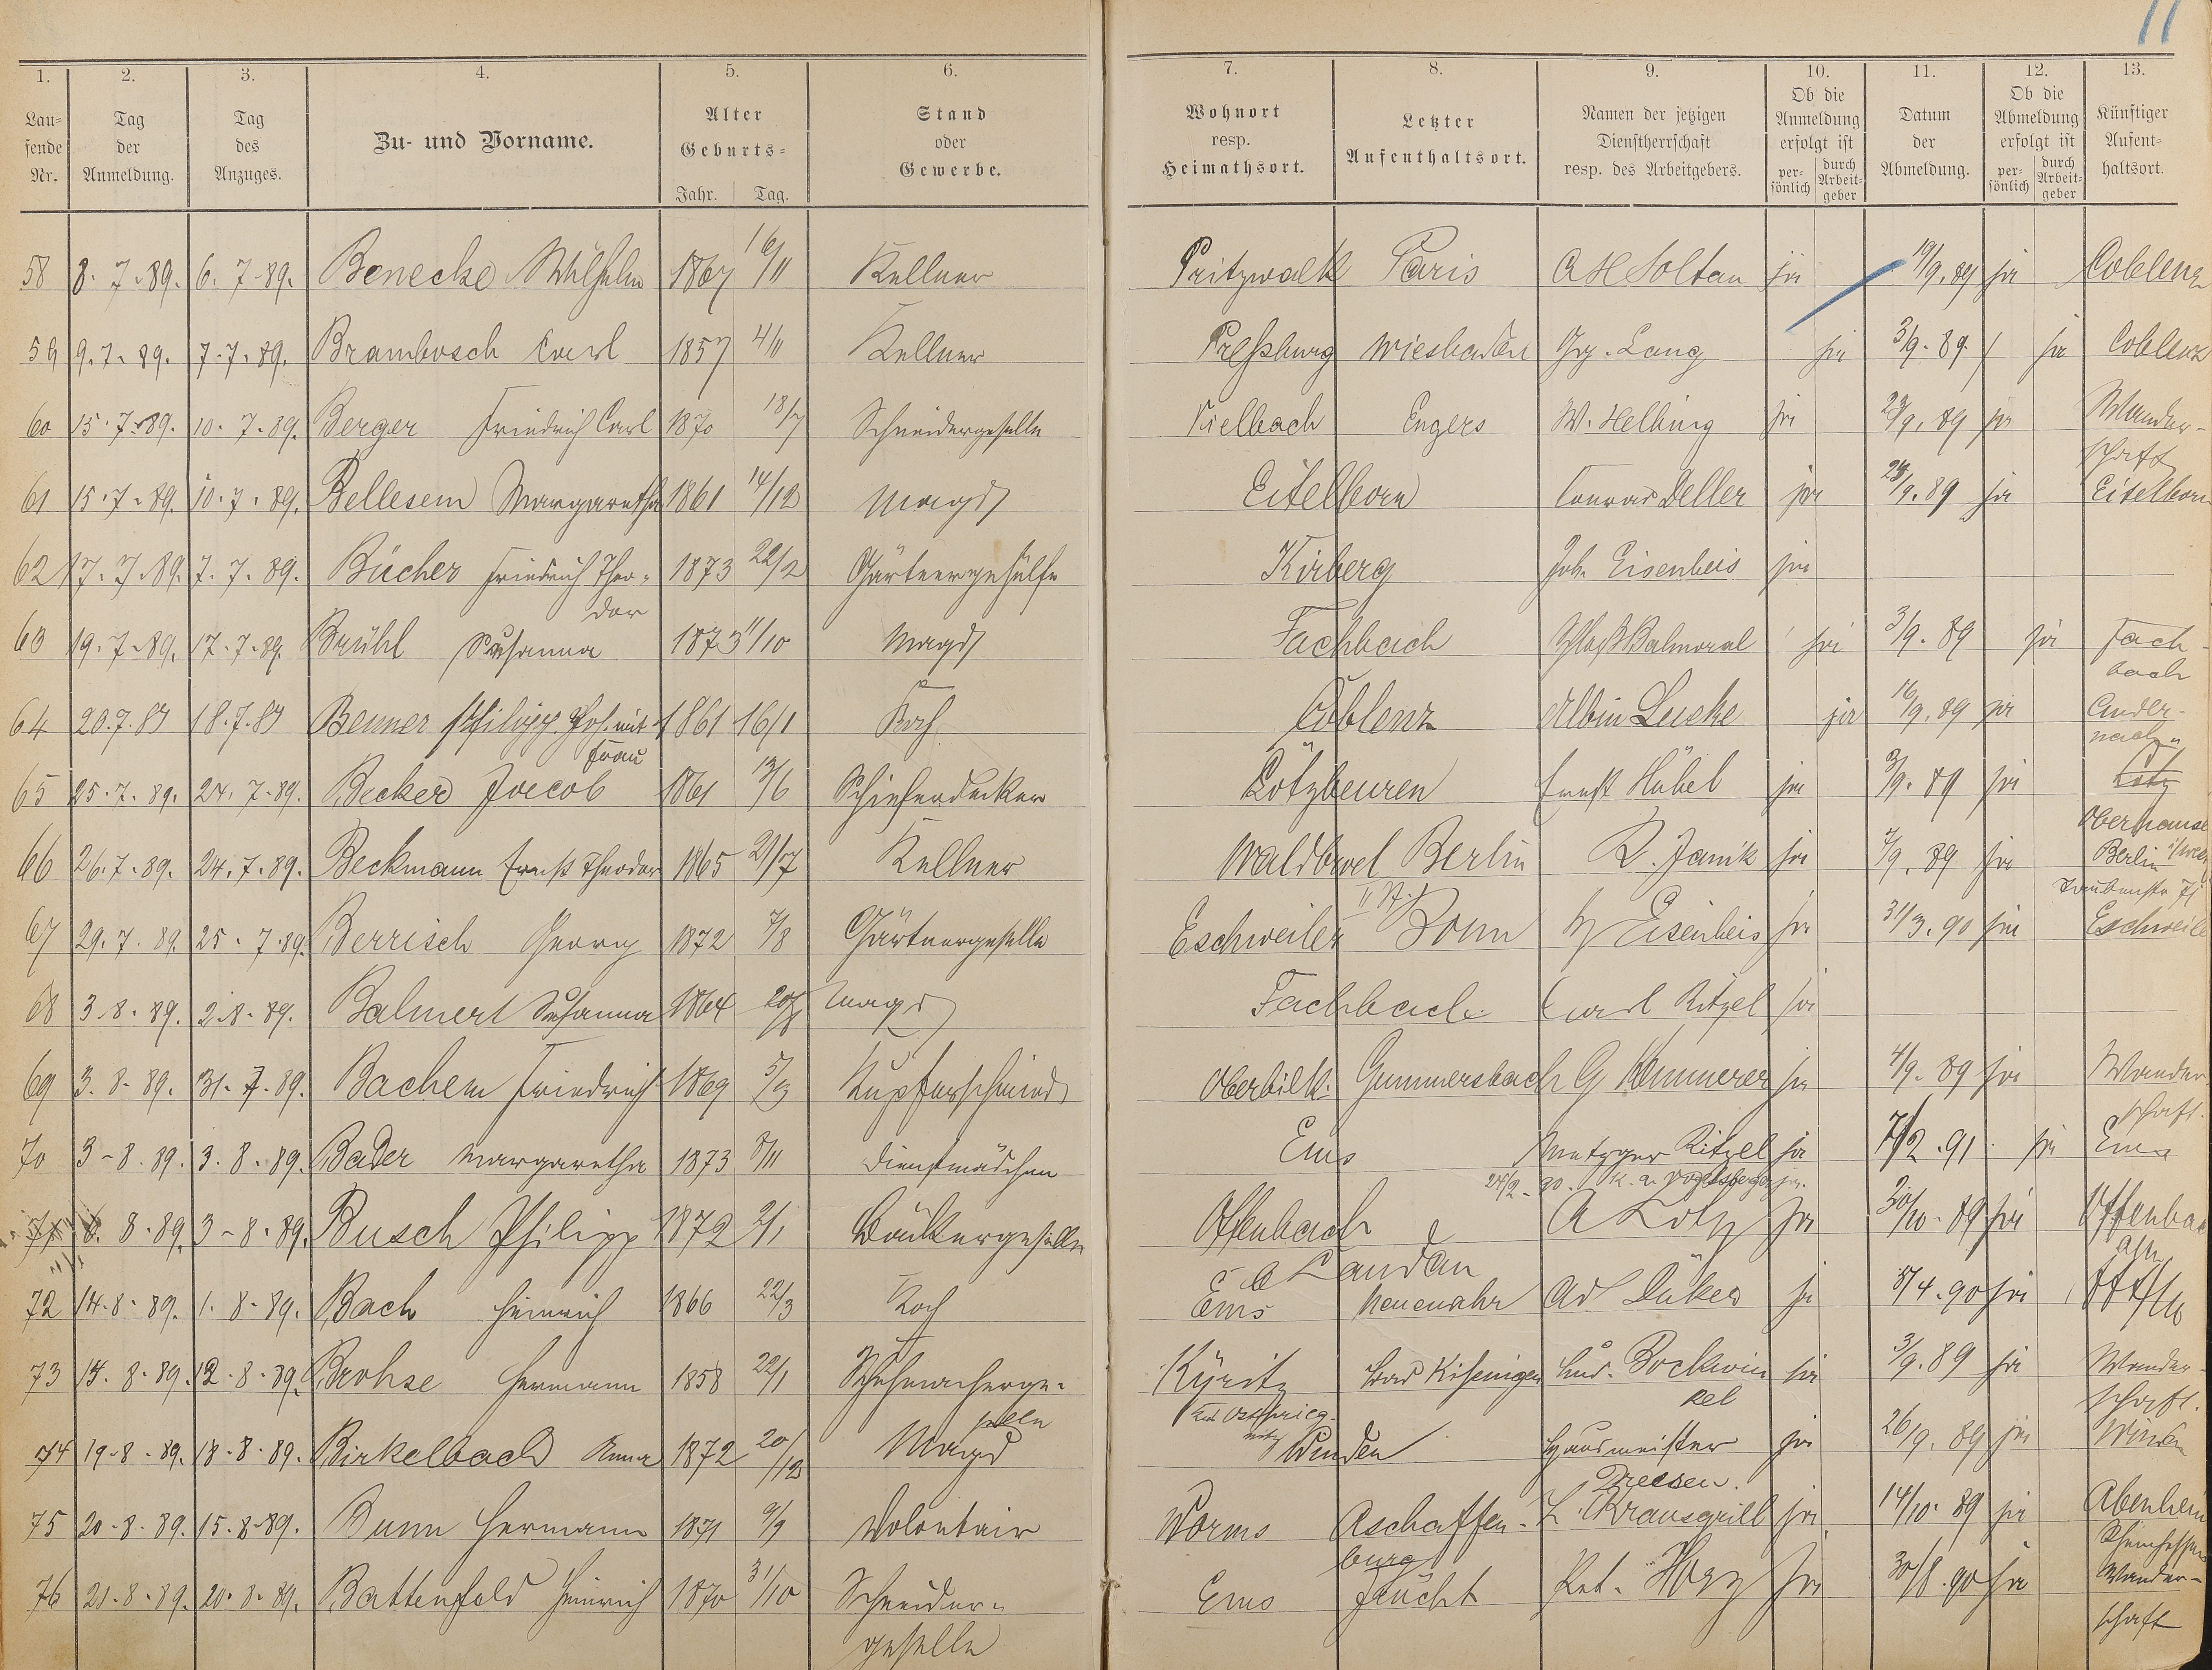 11
1. 2. 3. 4. 5. 6. 7. 8. 9. 10. 11. 12. 13.
Lau-
fende
Nr.
Tag
der
Anmeldung.
Tag
des
Anzuges.
Zu- und Vorname.
Alter
Geburts-
Jahr. Tag.
Stand
oder
Gewerbe.
Wohnort
resp.
Heimathsort.
Letzter
Aufenthaltsort.
Namen der jetzigen
Dienstherrschaft
resp. des Arbeitgebers.
Ob die
Anmeldung
erfolgt ist
per-
sönlich
durch
Arbeit-
geber
Datum
der
Abmeldung.
Ob die
Abmeldung
erfolgt ist
per-
sönlich
durch
Arbeit-
geber
Künftiger
Aufent-
haltsort.
58 8. 7. 89. 6. 7. 89. Benecke Wilhelm 1867 16/11 Kellner Pritzwalk Paris A H Soltau ja 19/9. 89 ja Coblenz
59 9. 7. 89. 7. 7. 89. Brambosch Carl 1857 4/11 Kellner Preßburg Wiesbaden Gg. Lang ja 3/9. 89. ja Coblenz
60 15. 7. 89. 10. 7. 89. Berger Friedrich Carl 1870 18/7 Schneidergeselle Kielbach Engers W. Helbing ja 23/9. 89 ja Wander-
schaft
61 15. 7. 89. 10. 7. 89. Bellesem Margaretha 1861 14/12 Magd Eitelborn Conrad Deller ja 28/9. 89 ja Eitelborn
62 17. 7. 89. 7. 7. 89. Bücher Friedrich Theo- 1873 22/2 Gärtnergehülfe Kirberg Joh. Eisenheis ja
dor
63 19. 7. 89. 17. 7. 89. Brühl Susanna 1873 11/10 Magd Fachbach Schloß Balmoral ja 3/9. 89 ja Fach-
bach
64 20. 7. 89 18. 7. 89 Benner Philipp Joh. mit 1861 16/1 Koch Coblenz Albin Lucke ja 16/9. 89 ja Ander-
nach
Frau
65 25. 7. 89. 24. 7. 89. Becker Jacob 1861 13/6 Schieferdecker Lötzbeuren Ernst Hübel ja 3/9. 89 ja Lötz
Oberhause
66 26. 7. 89. 24. 7. 89. Beckmann Ernst Theodor 1865 21/7 Kellner Waldbroel Berlin R. Janik ja 7/9. 89 ja Berlin
Taubenstr
67 29. 7. 89. 25. 7. 89. Berrisch Georg 1872 7/8 Gärtnergeselle Eschweiler Bonn Eisenheis ja 31/3. 90 ja Eschweile
68 3. 8. 89. 2. 8. 89. Balmert Susanna 1864 Magd Fachbach Carl Ritzel ja
69 3. 8. 89. 31. 7. 89. Bachem Friedrich 1869 5/3 Kupferschmied Oberbilk. Gummersbach G Kemmerer ja 4/9. 89 ja Wander
schaft.
70 3. 8. 89. 3. 8. 89. Bader Margaretha 1873 8/11 Dienstmädchen Ems Metzger Ritzel ja 7/2. 91. ja Ems
71 6. 8. 89. 3. 8. 89. Busch Philipp 1872 2/1 Bäckergeselle Offenbach A Lotz ja 30/10. 89 ja Offenbac
a Landau
72 14. 8. 89. 1. 8. 89. Bach Heinrich 1866 22/3 Koch Ems Neuenahr Ad Düker ja 8/4. 90 ja
73 14. 8. 89. 12. 8. 89. Brohse Hermann 1858 22/1 Schuhmacherge- Kyritz Bad Kissingen Bockwin ja 3/9. 89 ja Wander-
selle
kel
schaft.
Ostprieg-
nitz
74 19. 8. 89. 18. 8. 89. Birkelbach Anna 1872 20/12 Magd Winden Hausmeister ja 26/9. 89 ja Winden
Dressen.
75 20. 8. 89. 15. 8. 89. Bunn Hermann 1871 9/9 Volontair Worms Aschaffen- L. Krausgrill ja 14/10. 89 ja Abenheim
burg
Rheinhessen
76 21. 8. 89. 20. 8. 89. Battenfeld Heinrich 1870 31/10 Schneider- Ems Frücht Pet. ja 30/8. 90 ja Wander-
geselle
schaft